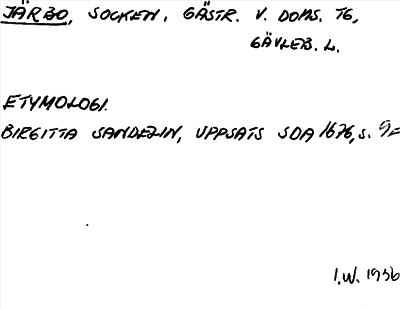 JÄRBO, SOCKEN, GÄSTR. V. DOMS. TG,
GÄVLEB. L.
ETYMOLOGI.
BIRGITTA SANDELIN, UPPSATS SOA 1676, S. 9
I.W. 1956